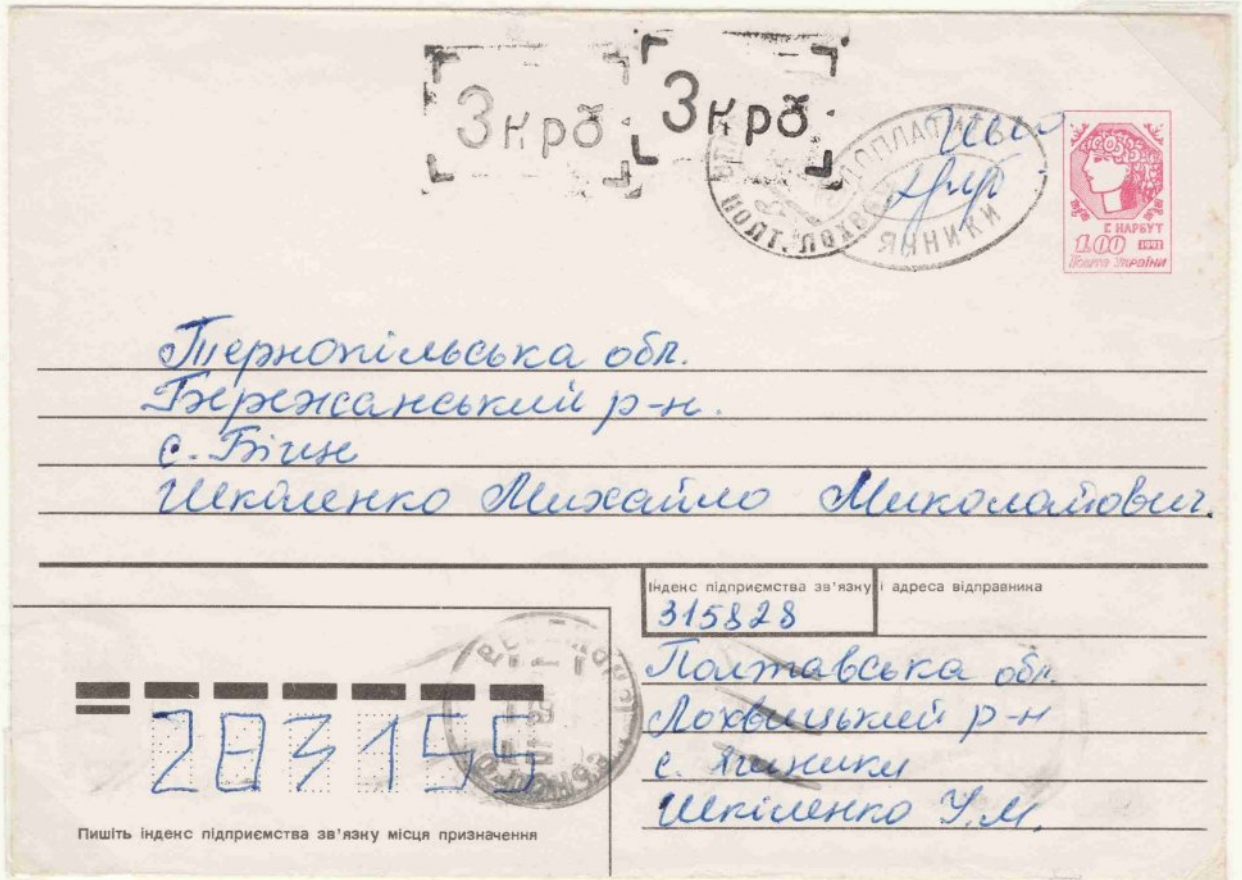 3 крб
3 крб
ДОПЛАТИТЬ
ЯННИКИ
Г. НАРБУТ
1.00 1992
Пошта України
Тернопільська обл.
Бережанський р-н.
с. Біще
Шкіленко Михайло Миколайович.
Індекс підприємства зв'язку і адреса відправника
315828
Полтавська обл.
Лохвицький р-н
с.
Шкіленко У.М.
283155
Пишіть індекс підприємства зв'язку місця призначення